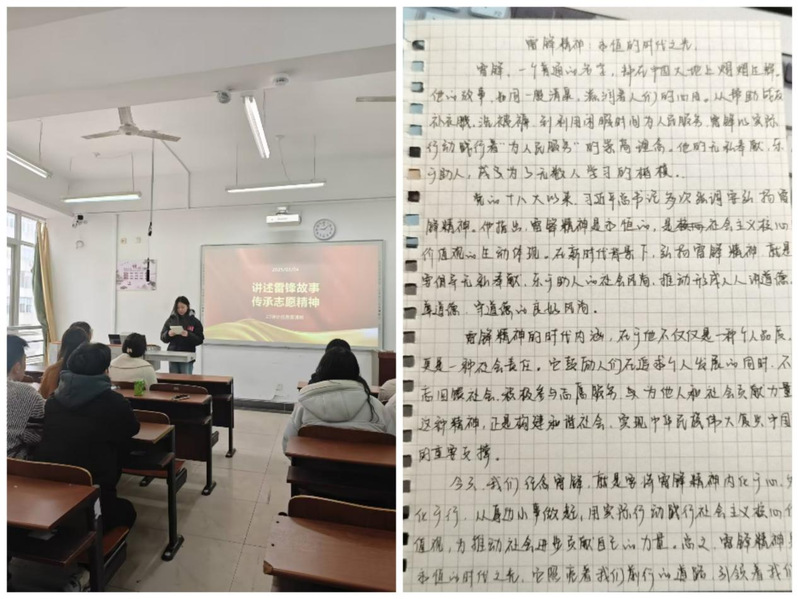 讲述雷锋故事
传承志愿精神
雷锋精神:永恒的时代之光
雷锋,一个普通的名字,却在中国大地上熠熠生辉。
他的故事,如同一股清泉,滋润着人们的心田。从帮助战友
补衣服、洗被褥,到利用闲暇时间为人民服务,雷锋以实际
行动践行着“为人民服务”的崇高理念。他的无私奉献、乐
于助人,成为了无数人学习的楷模。
党的十八大以来,习近平总书记多次强调要弘扬雷
锋精神。他指出,雷锋精神是永恒的,是社会主义核心
价值观的生动体现。在新时代背景下,弘扬雷锋精神,就是
要倡导无私奉献、乐于助人的社会风尚,推动形成人人讲道德、
尊道德、守道德的良好风尚。
雷锋精神的时代内涵,在于他不仅仅是一种个人品质,
更是一种社会责任。它鼓励人们在追求个人发展的同时,不
忘回馈社会,积极参与志愿服务,为他人和社会贡献力量
这种精神,正是构建和谐社会、实现中华民族伟大复兴中国
的重要支撑。
今天,我们纪念雷锋,就是要将雷锋精神内化于心、外
化于行,从身边小事做起,用实际行动践行社会主义核心价
值观,为推动社会进步贡献自己的力量。总之,雷锋精神是
永恒的时代之光,它照亮着我们前行的道路,引领着我们